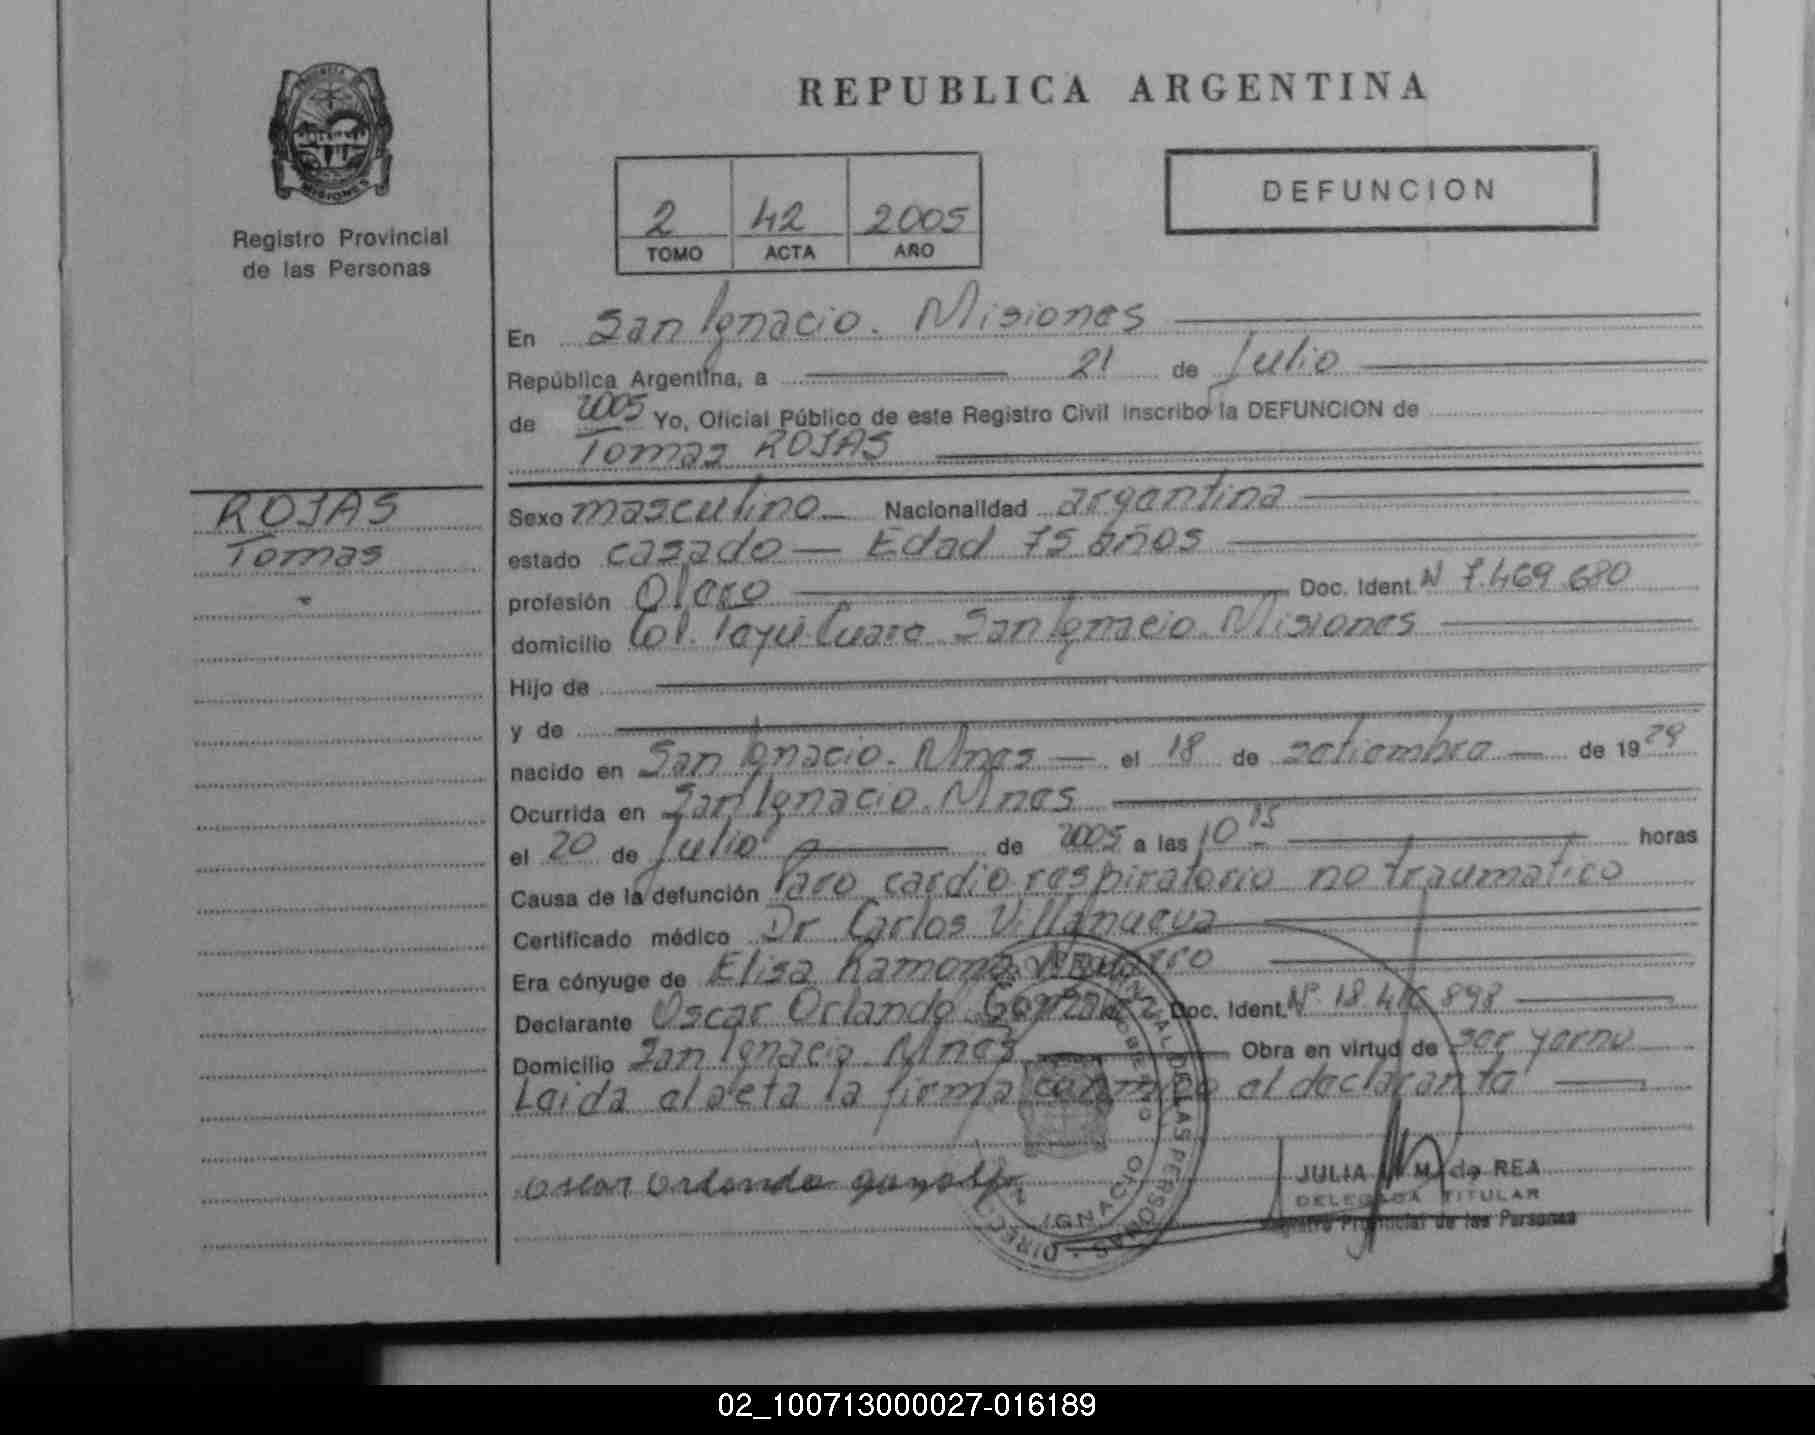 REPUBLICA ARGENTINA
PROVINCIA DE
MISIONES
Registro Provincial
de las Personas
2 42 2005
TOMO ACTA AÑO
DEFUNCION
En San Ignacio. Misiones
República Argentina, a 21 de Julio
de 2005 Yo, Oficial Público de este Registro Civil inscribo la DEFUNCION de
Tomas ROJAS
ROJAS
Tomas
Sexo masculino Nacionalidad argentina
estado casado Edad 75 años
profesión Olero Doc. Ident. N 7.469.680
domicilio Col. Tayú Cuare San Ignacio. Misiones
Hijo de
y de
nacido en San Ignacio. Mnes el 18 de setiembre de 1929
Ocurrida en San Ignacio. Mnes
el 20 de Julio de 2005 a las 10 15 horas
Causa de la defunción Paro cardio respiratorio no traumatico
Certificado médico Dr Carlos Villanueva
Era cónyuge de Elisa Ramona
Declarante Oscar Orlando Gonzalez Doc. Ident. Nº 18.416.898
Domicilio San Ignacio. Mnes Obra en virtud de ser yerno
Leida el acta la firma conmigo el declarante
oscar orlando gonzalez
JULIA M. de REA
DELEGADA TITULAR
Registro Provincial de las Personas
DIREC. PROVINCIAL DE LAS PERSONAS
IGNACIO
02_100713000027-016189